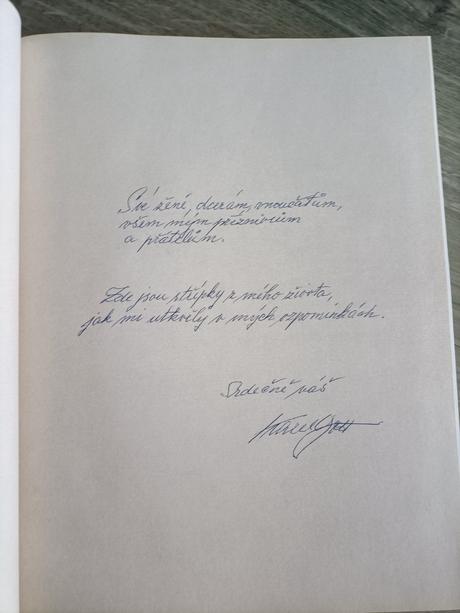 Své ženě, dcerám, vnoučatům,
všem mým příznivcům
a přátelům.
Zde jsou střípky z mého života,
jak mi utkvěly v mých vzpomínkách.
Srdečně váš
Karel Gott